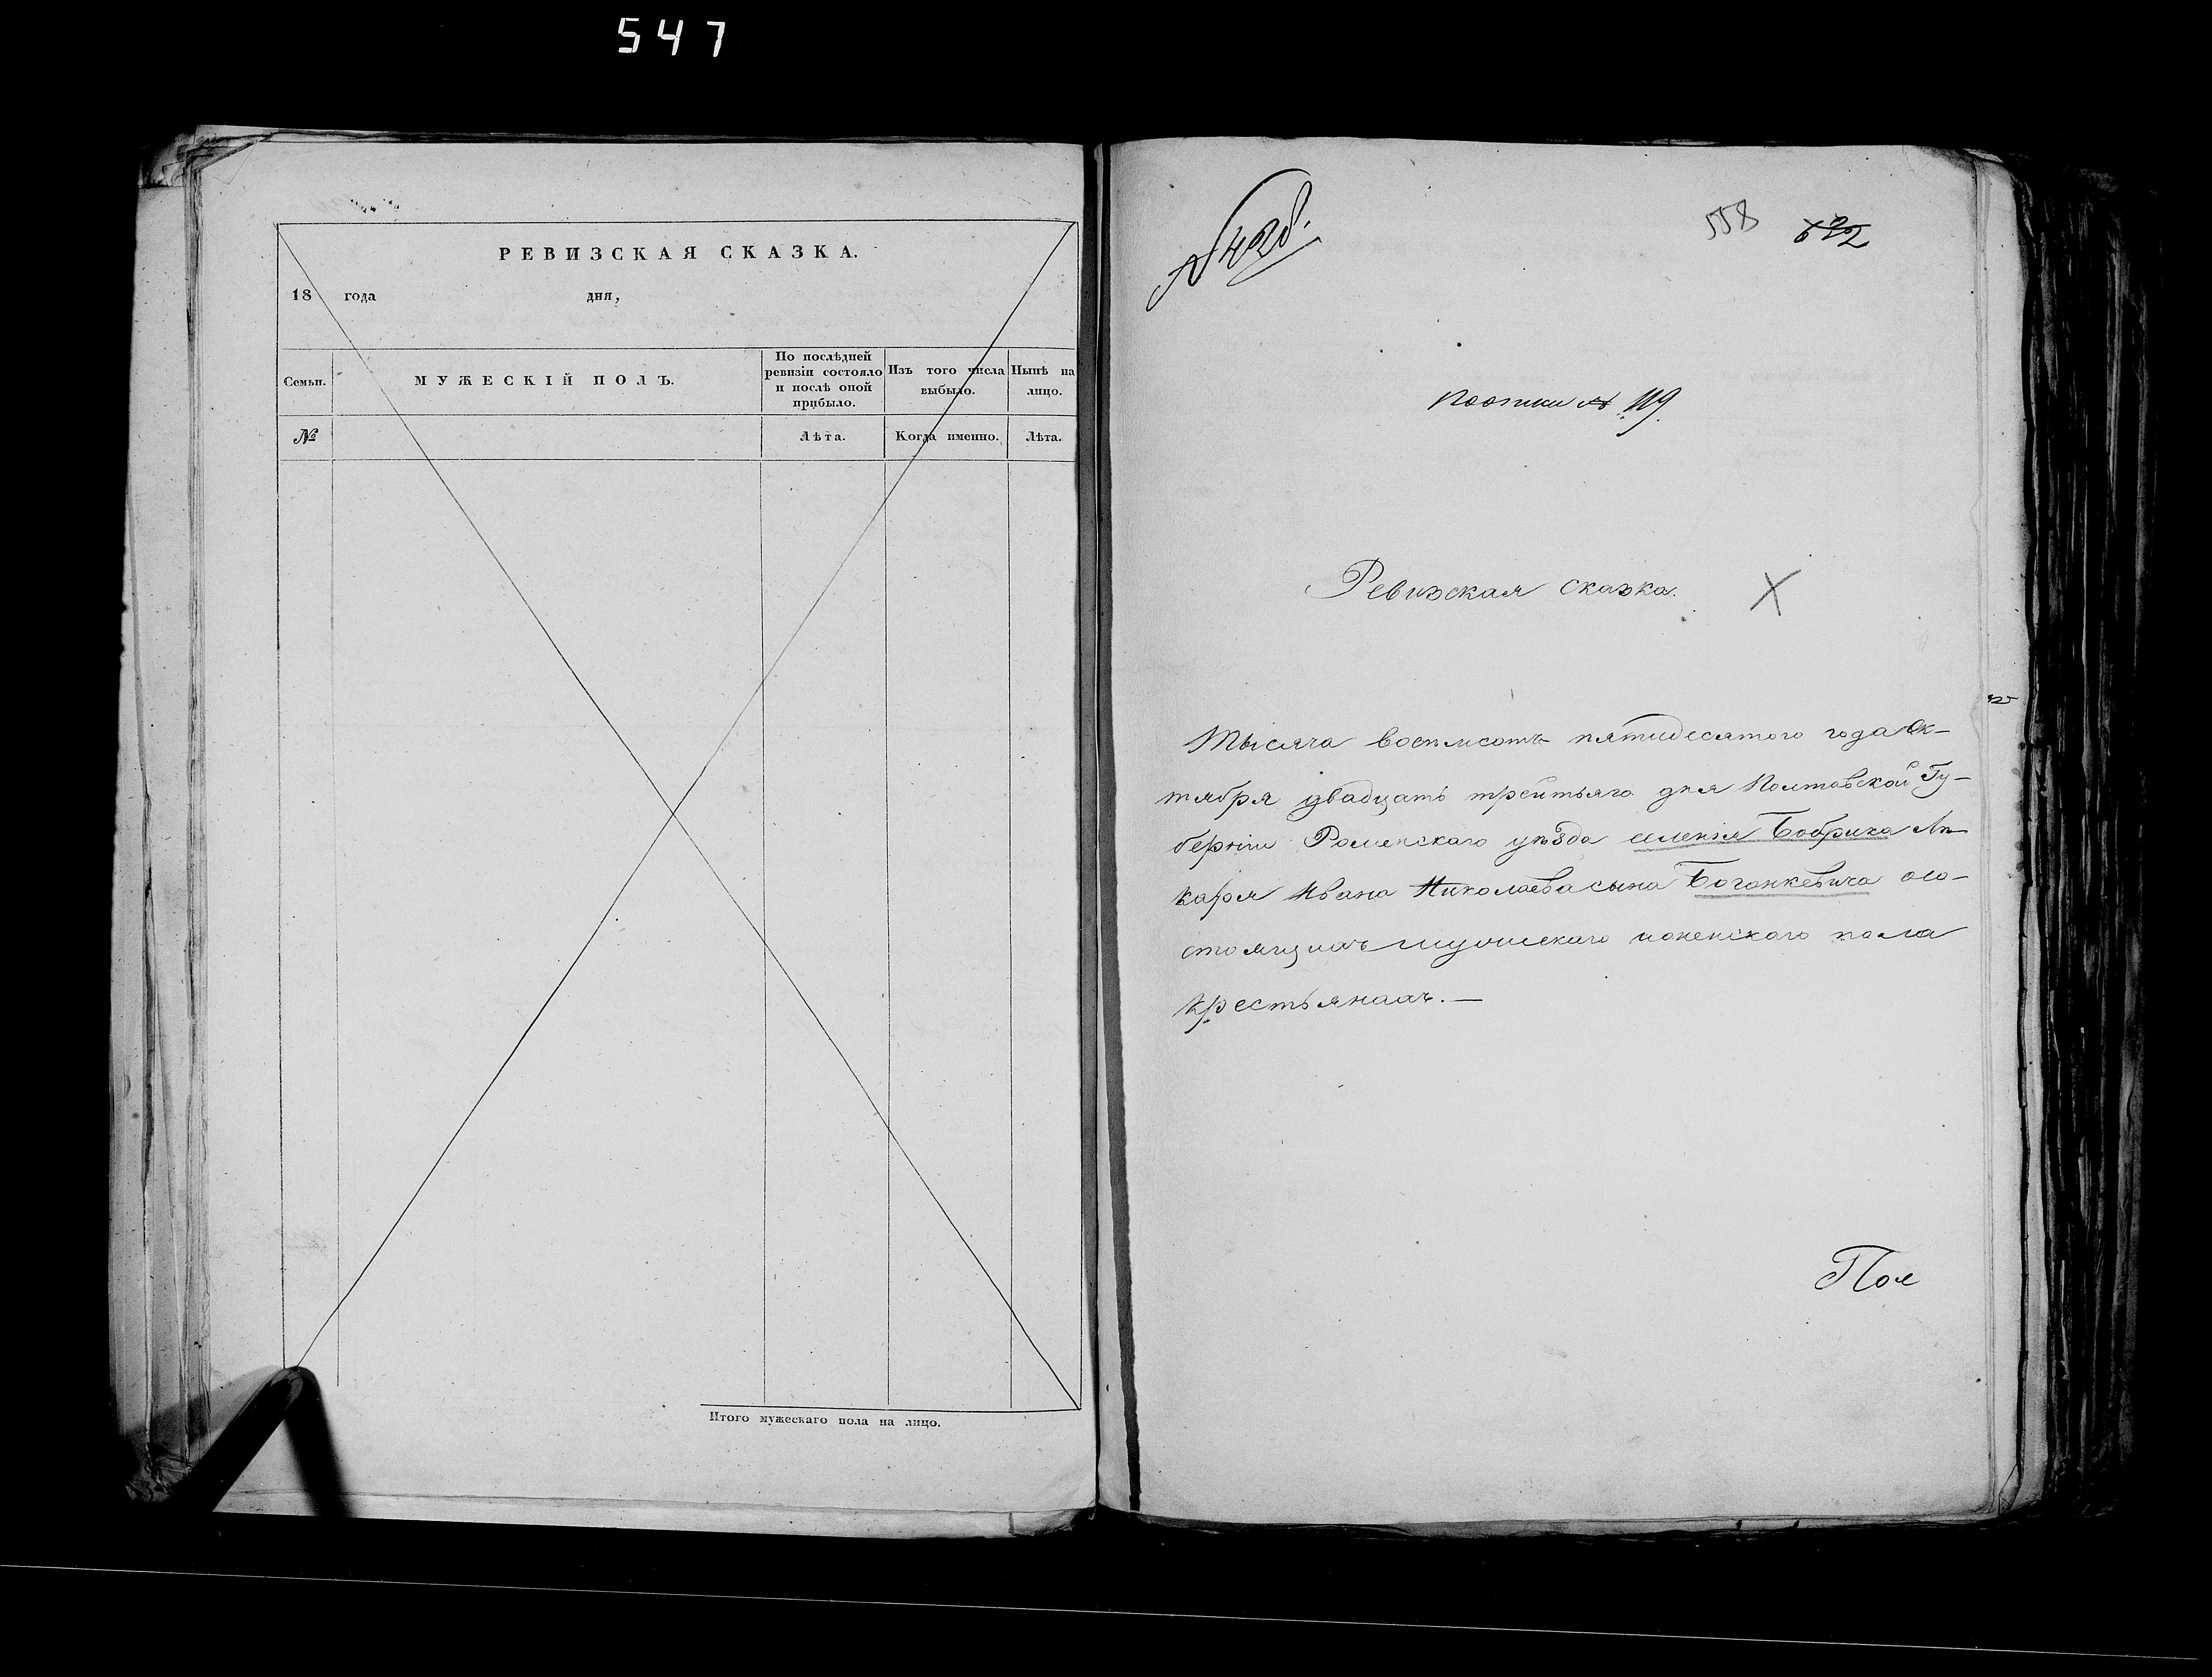 547
РЕВИЗСКАЯ СКАЗКА.
18 года дня,
Семьи.
МУЖЕСКІЙ ПОЛЪ.
По послѣдней ревизіи состояло и послѣ оной прибыло.
Изъ того числа выбыло.
Нынѣ на лицо.
№
Лѣта.
Когда именно.
Лѣта.
Итого мужескаго пола на лицо.
558
632
№ 428.
№ 119.
Ревизская сказка.
Тысяча восемсотъ пятидесятого года Ок-
тября двадцать третьяго дня Полтавской Гу-
берніи Роменскаго уѣзда селенія Бобрика Ле-
каря Ивана Николаева сына Боганкевича о со-
стоящихъ мужескаго и женскаго пола
крестьянахъ.—
Пол